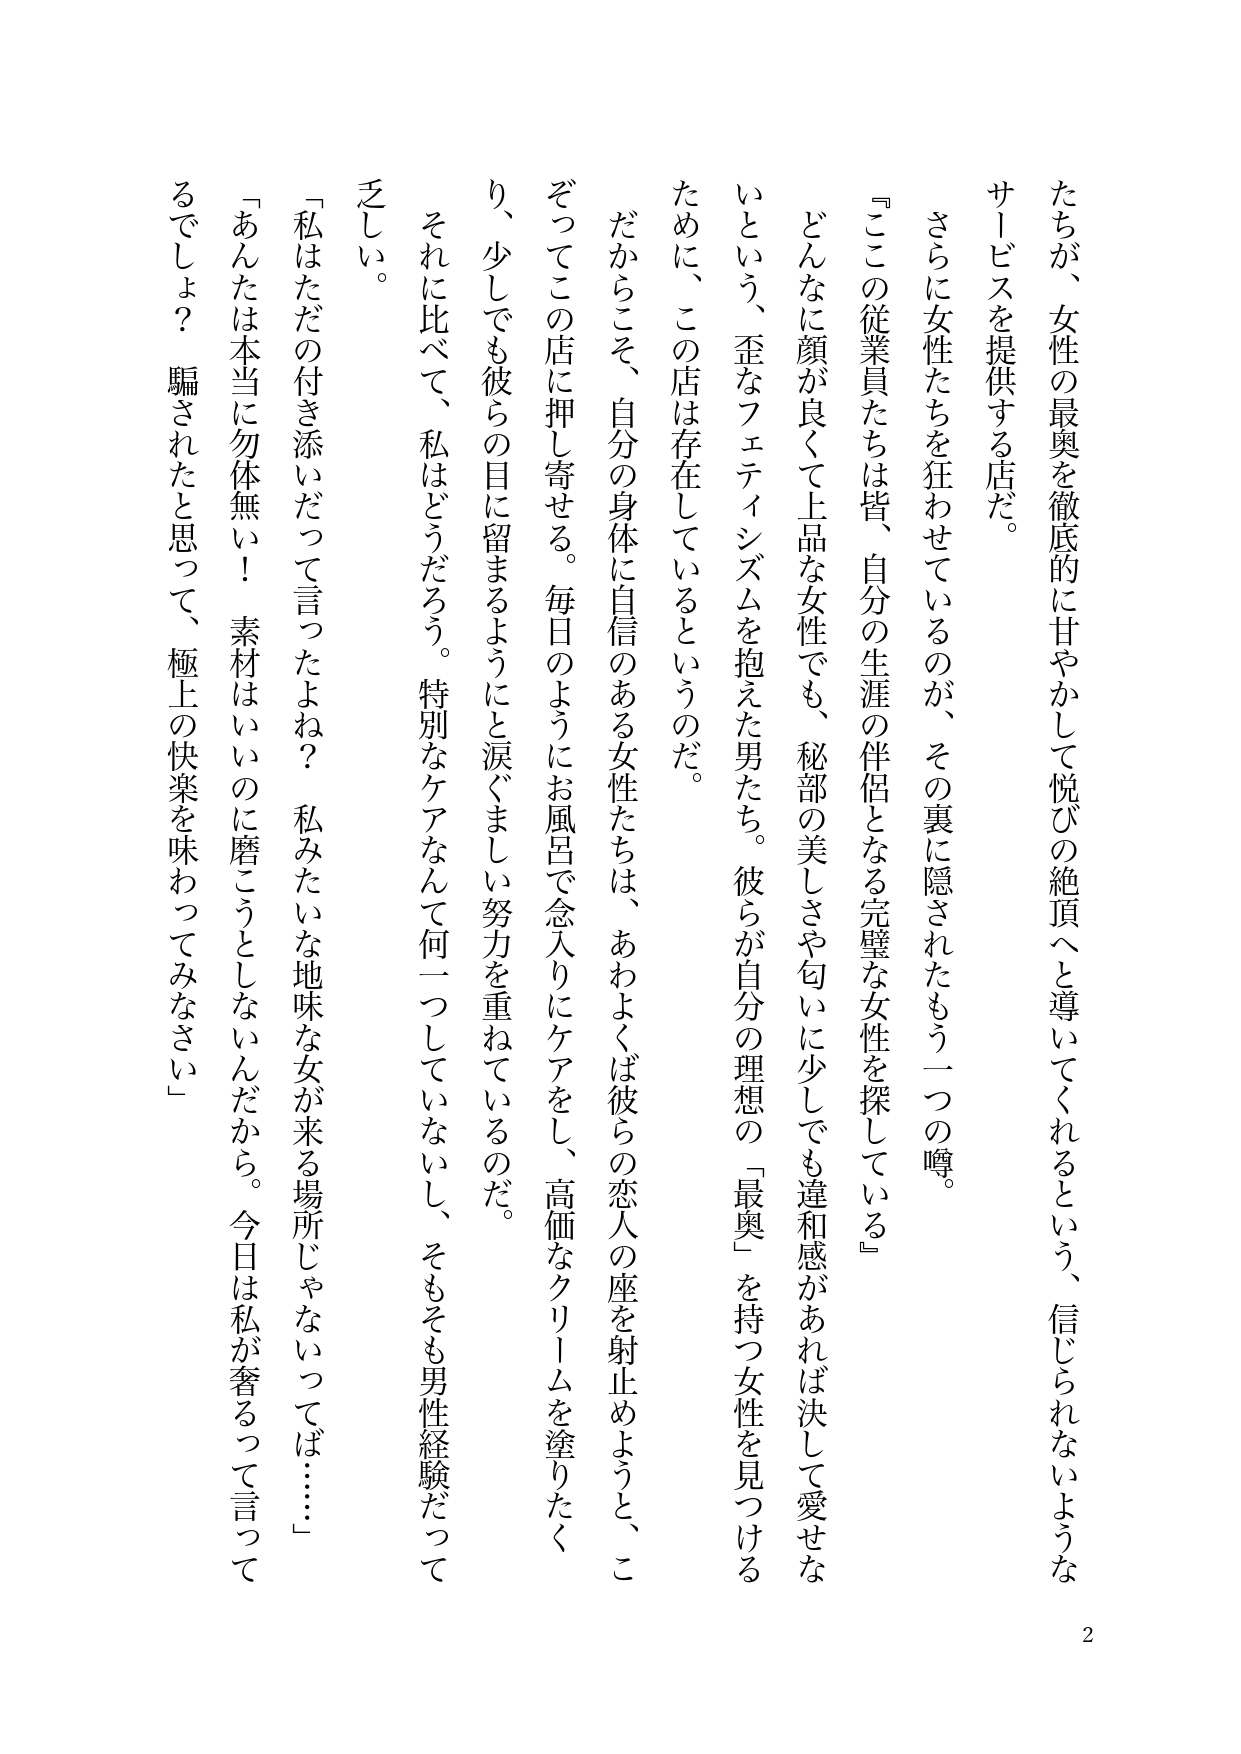 たちが、女性の最奥を徹底的に甘やかして悦びの絶頂へと導いてくれるという、信じられないような
サービスを提供する店だ。
　さらに女性たちを狂わせているのが、その裏に隠されたもう一つの噂。
『ここの従業員たちは皆、自分の生涯の伴侶となる完璧な女性を探している』
　どんなに顔が良くて上品な女性でも、秘部の美しさや匂いに少しでも違和感があれば決して愛せな
いという、歪なフェティシズムを抱えた男たち。彼らが自分の理想の「最奥」を持つ女性を見つける
ために、この店は存在しているというのだ。
　だからこそ、自分の身体に自信のある女性たちは、あわよくば彼らの恋人の座を射止めようと、こ
ぞってこの店に押し寄せる。毎日のようにお風呂で念入りにケアをし、高価なクリームを塗りたく
り、少しでも彼らの目に留まるようにと涙ぐましい努力を重ねているのだ。
　それに比べて、私はどうだろう。特別なケアなんて何一つしていないし、そもそも男性経験だって
乏しい。
「私はただの付き添いだって言ったよね？　私みたいな地味な女が来る場所じゃないってば……」
「あんたは本当に勿体無い！　素材はいいのに磨こうとしないんだから。今日は私が奢るって言って
るでしょ？　騙されたと思って、極上の快楽を味わってみなさい」
2